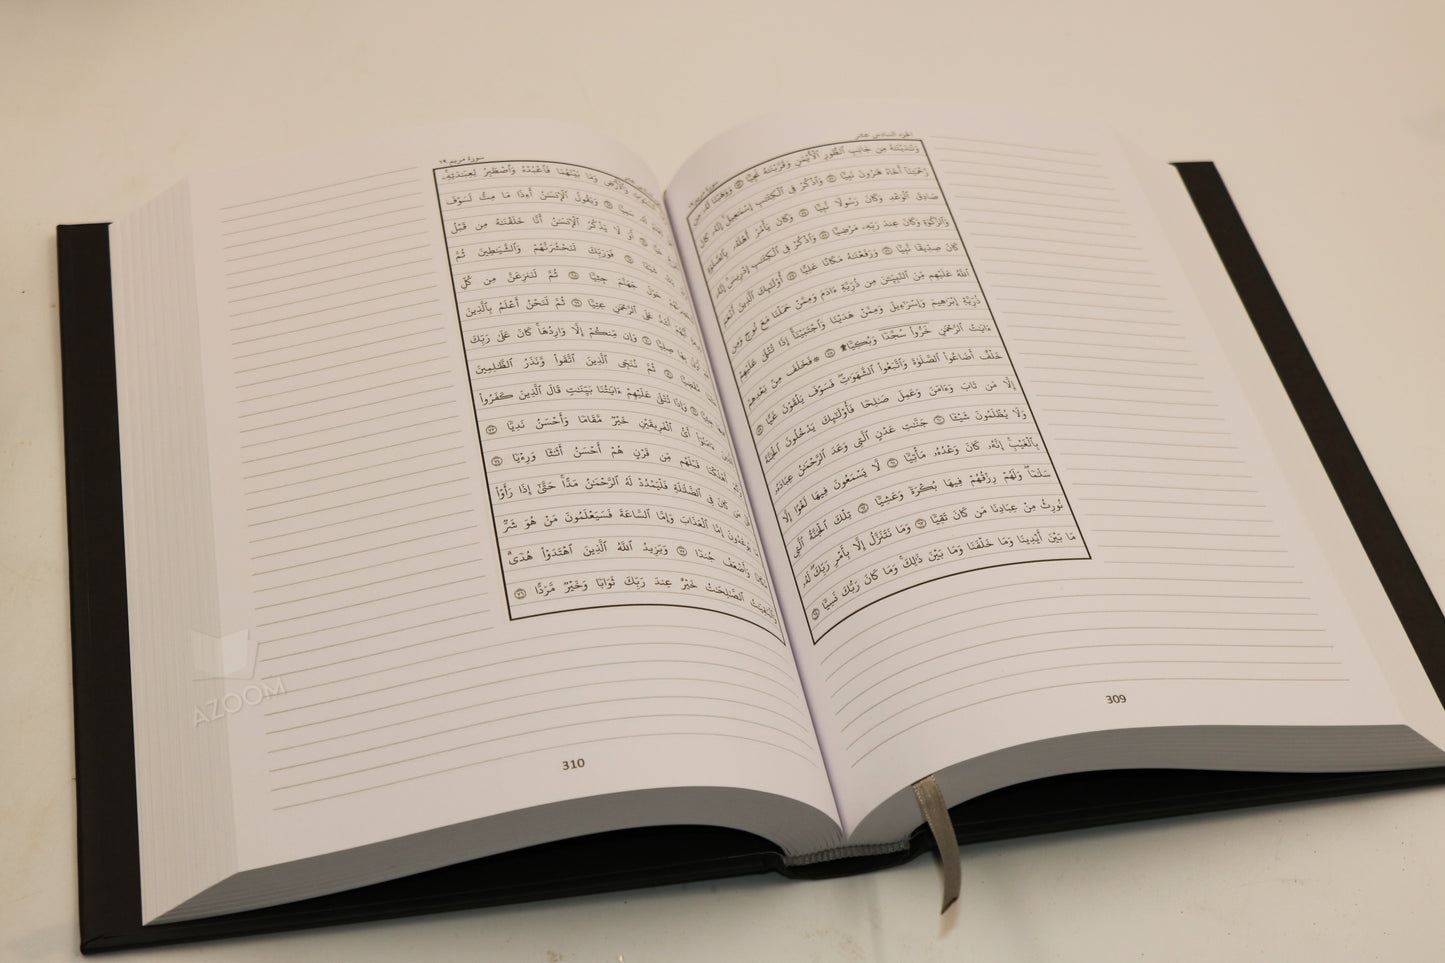 الجزء السادس عشر
سورة مريم ١٩
وَنَٰدَيْنَٰهُ مِن جَانِبِ ٱلطُّورِ ٱلْأَيْمَنِ وَقَرَّبْنَٰهُ نَجِيًّا ٥٢ وَوَهَبْنَا لَهُۥ مِن
رَّحْمَتِنَآ أَخَاهُ هَٰرُونَ نَبِيًّا ٥٣ وَٱذْكُرْ فِى ٱلْكِتَٰبِ إِسْمَٰعِيلَ إِنَّهُۥ كَانَ
صَادِقَ ٱلْوَعْدِ وَكَانَ رَسُولًا نَّبِيًّا ٥٤ وَكَانَ يَأْمُرُ أَهْلَهُۥ بِٱلصَّلَوٰةِ
وَٱلزَّكَوٰةِ وَكَانَ عِندَ رَبِّهِۦ مَرْضِيًّا ٥٥ وَٱذْكُرْ فِى ٱلْكِتَٰبِ إِدْرِيسَ إِنَّهُۥ
كَانَ صِدِّيقًا نَّبِيًّا ٥٦ وَرَفَعْنَٰهُ مَكَانًا عَلِيًّا ٥٧ أُو۟لَٰٓئِكَ ٱلَّذِينَ أَنْعَمَ
ٱللَّهُ عَلَيْهِم مِّنَ ٱلنَّبِيِّـۧنَ مِن ذُرِّيَّةِ ءَادَمَ وَمِمَّنْ حَمَلْنَا مَعَ نُوحٍ وَمِن
ذُرِّيَّةِ إِبْرَٰهِيمَ وَإِسْرَٰٓءِيلَ وَمِمَّنْ هَدَيْنَا وَٱجْتَبَيْنَآ إِذَا تُتْلَىٰ عَلَيْهِمْ
ءَايَٰتُ ٱلرَّحْمَٰنِ خَرُّوا۟ سُجَّدًا وَبُكِيًّا ۩ ٥٨ ۞ فَخَلَفَ مِنۢ بَعْدِهِمْ
خَلْفٌ أَضَاعُوا۟ ٱلصَّلَوٰةَ وَٱتَّبَعُوا۟ ٱلشَّهَوَٰتِ فَسَوْفَ يَلْقَوْنَ غَيًّا ٥٩
إِلَّا مَن تَابَ وَءَامَنَ وَعَمِلَ صَٰلِحًا فَأُو۟لَٰٓئِكَ يَدْخُلُونَ ٱلْجَنَّةَ
وَلَا يُظْلَمُونَ شَيْـًٔا ٦٠ جَنَّٰتِ عَدْنٍ ٱلَّتِى وَعَدَ ٱلرَّحْمَٰنُ عِبَادَهُۥ
بِٱلْغَيْبِ إِنَّهُۥ كَانَ وَعْدُهُۥ مَأْتِيًّا ٦١ لَّا يَسْمَعُونَ فِيهَا لَغْوًا إِلَّا
سَلَٰمًا وَلَهُمْ رِزْقُهُمْ فِيهَا بُكْرَةً وَعَشِيًّا ٦٢ تِلْكَ ٱلْجَنَّةُ ٱلَّتِى
نُورِثُ مِنْ عِبَادِنَا مَن كَانَ تَقِيًّا ٦٣ وَمَا نَتَنَزَّلُ إِلَّا بِأَمْرِ رَبِّكَ لَهُۥ
مَا بَيْنَ أَيْدِينَا وَمَا خَلْفَنَا وَمَا بَيْنَ ذَٰلِكَ وَمَا كَانَ رَبُّكَ نَسِيًّا ٦٤
309
سورة مريم ١٩
وَٱلْأَرْضِ وَمَا بَيْنَهُمَا فَٱعْبُدْهُ وَٱصْطَبِرْ لِعِبَٰدَتِهِۦ
سَمِيًّا ٦٥ وَيَقُولُ ٱلْإِنسَٰنُ أَءِذَا مَا مِتُّ لَسَوْفَ
أَوَلَا يَذْكُرُ ٱلْإِنسَٰنُ أَنَّا خَلَقْنَٰهُ مِن قَبْلُ
شَيْـًٔا ٦٧ فَوَرَبِّكَ لَنَحْشُرَنَّهُمْ وَٱلشَّيَٰطِينَ ثُمَّ
حَوْلَ جَهَنَّمَ جِثِيًّا ٦٨ ثُمَّ لَنَنزِعَنَّ مِن كُلِّ
أَيُّهُمْ أَشَدُّ عَلَى ٱلرَّحْمَٰنِ عِتِيًّا ٦٩ ثُمَّ لَنَحْنُ أَعْلَمُ بِٱلَّذِينَ
بِهَا صِلِيًّا ٧٠ وَإِن مِّنكُمْ إِلَّا وَارِدُهَا كَانَ عَلَىٰ رَبِّكَ
مَّقْضِيًّا ٧١ ثُمَّ نُنَجِّى ٱلَّذِينَ ٱتَّقَوا۟ وَّنَذَرُ ٱلظَّٰلِمِينَ
جِثِيًّا ٧٢ وَإِذَا تُتْلَىٰ عَلَيْهِمْ ءَايَٰتُنَا بَيِّنَٰتٍ قَالَ ٱلَّذِينَ كَفَرُوا۟
ءَامَنُوٓا۟ أَىُّ ٱلْفَرِيقَيْنِ خَيْرٌ مَّقَامًا وَأَحْسَنُ نَدِيًّا ٧٣
أَهْلَكْنَا قَبْلَهُم مِّن قَرْنٍ هُمْ أَحْسَنُ أَثَٰثًا وَرِءْيًا ٧٤
مَن كَانَ فِى ٱلضَّلَٰلَةِ فَلْيَمْدُدْ لَهُ ٱلرَّحْمَٰنُ مَدًّا حَتَّىٰٓ إِذَا رَأَوْا۟
مَا يُوعَدُونَ إِمَّا ٱلْعَذَابَ وَإِمَّا ٱلسَّاعَةَ فَسَيَعْلَمُونَ مَنْ هُوَ شَرٌّ
مَّكَانًا وَأَضْعَفُ جُندًا ٧٥ وَيَزِيدُ ٱللَّهُ ٱلَّذِينَ ٱهْتَدَوْا۟ هُدًى
وَٱلْبَٰقِيَٰتُ ٱلصَّٰلِحَٰتُ خَيْرٌ عِندَ رَبِّكَ ثَوَابًا وَخَيْرٌ مَّرَدًّا ٧٦
310
AZOOM